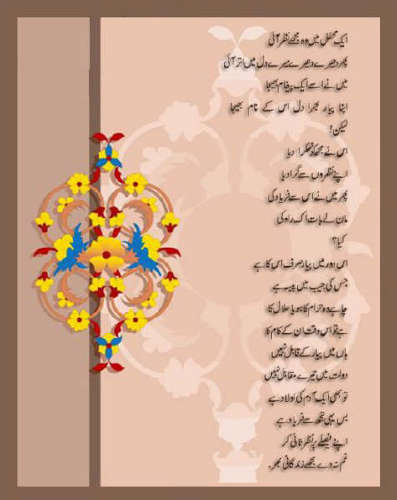 ایک محفل میں وہ مجھے نظر آئی
پھر دھیرے دھیرے میرے دل میں اتر آئی
میں نے اسے ایک پیغام بھیجا
اپنا پیار بھرا دل اس کے نام بھیجا
لیکن!
اس نے مجھ کو ٹھکرا دیا
اپنے نظروں سے گرا دیا
پھر میں نے اس سے فریاد کی
مان لے بات اک راہ کی
کیا؟
اس دور میں پیار صرف اس کا ہے
جس کی جیب میں پیسہ ہے
چاہے وہ حرام کا ہو یا حلال کا
ہے تو اس وقت ان کے کام کا
ہاں میں پیار کے قابل نہیں
دولت میں تیرے مقابل نہیں
تو بھی ایک آدم کی اولاد ہے
بس یہی تجھ سے فریاد ہے
اپنے فیصلے پر نظر ثانی کر
غم نہ دے مجھے زندگانی بھر۔